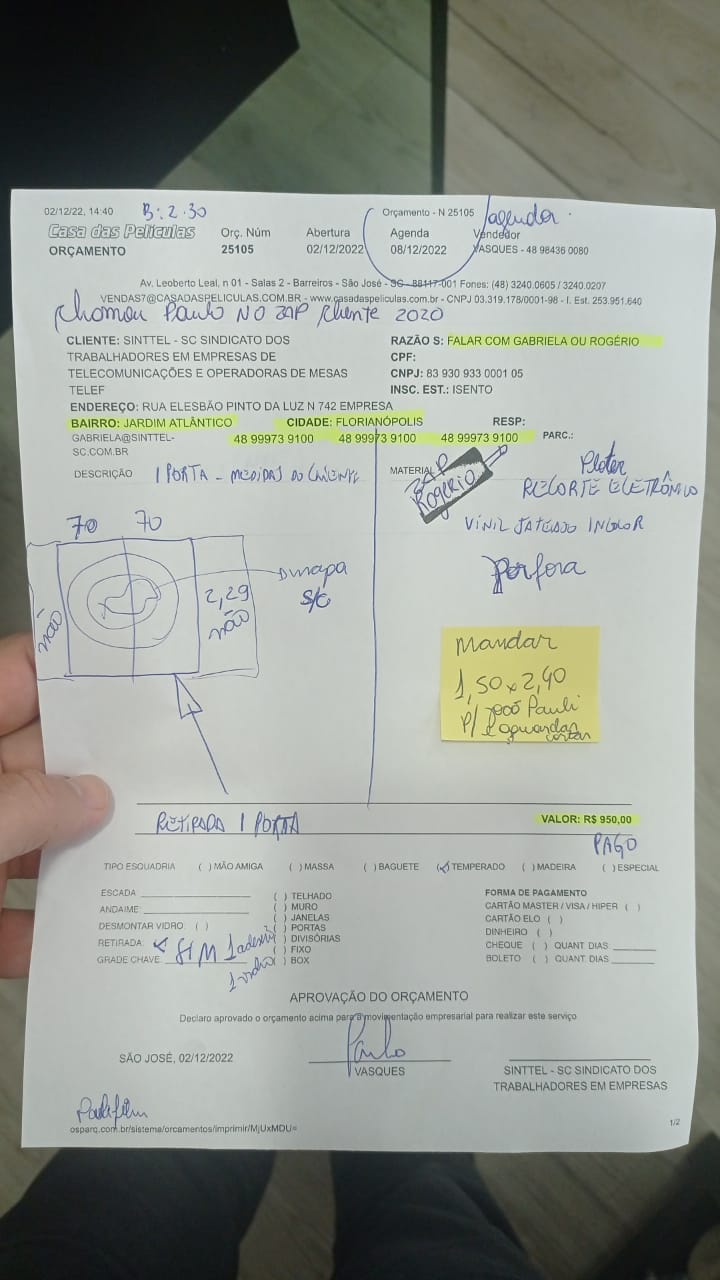 02/12/22, 14:40
B: 2.30
Orçamento - N 25105
agendar.
Casa das Películas
Orç. Núm
Abertura
Agenda
Vendedor
ORÇAMENTO
25105
02/12/2022
08/12/2022
VASQUES - 48 98436 0080
Av. Leoberto Leal, n 01 - Salas 2 - Barreiros - São José - SC - 88117-001 Fones: (48) 3240.0605 / 3240.0207
VENDAS7@CASADASPELICULAS.COM.BR - www.casadaspeliculas.com.br - CNPJ 03.319.178/0001-98 - I. Est. 253.951.640
Chamou Paulo NO ZAP cliente 2020
CLIENTE: SINTTEL - SC SINDICATO DOS
TRABALHADORES EM EMPRESAS DE
TELECOMUNICAÇÕES E OPERADORAS DE MESAS
TELEF
RAZÃO S: FALAR COM GABRIELA OU ROGÉRIO
CPF:
CNPJ: 83 930 933 0001 05
INSC. EST.: ISENTO
ENDEREÇO: RUA ELESBÃO PINTO DA LUZ N 742 EMPRESA
BAIRRO: JARDIM ATLÂNTICO
CIDADE: FLORIANÓPOLIS
RESP:
GABRIELA@SINTTEL-
SC.COM.BR
48 99973 9100
48 99973 9100
48 99973 9100
PARC.:
DESCRIÇÃO
1 PORTA - MEDIDAS DO CLIENTE
MATERIAL
ZAP
Rogério
Ploter
RECORTE ELETRÔNICO
VINIL JATEADO INCOLOR
Perfora
70 70
não
2,29
não
mapa
S/C
mandar
1,50 x 2,40
P/ João Pauli
aguardar
cortar
RETIRADA 1 PORTA
VALOR: R$ 950,00
PAGO
TIPO ESQUADRIA ( ) MÃO AMIGA ( ) MASSA ( ) BAGUETE (✓) TEMPERADO ( ) MADEIRA ( ) ESPECIAL
ESCADA
ANDAIME:
DESMONTAR VIDRO: ( )
RETIRADA: SIM 1 adesivo
GRADE CHAVE:
1 vidro
( ) TELHADO
( ) MURO
( ) JANELAS
( ) PORTAS
( ) DIVISÓRIAS
( ) FIXO
( ) BOX
FORMA DE PAGAMENTO
CARTÃO MASTER / VISA / HIPER ( )
CARTÃO ELO ( )
DINHEIRO ( )
CHEQUE ( ) QUANT DIAS:
BOLETO ( ) QUANT DIAS
APROVAÇÃO DO ORÇAMENTO
Declaro aprovado o orçamento acima para a movimentação empresarial para realizar este serviço
SÃO JOSÉ, 02/12/2022
Paulo
VASQUES
SINTTEL - SC SINDICATO DOS
TRABALHADORES EM EMPRESAS
Paulifilm
osparq.com.br/sistema/orcamentos/imprimir/MjUxMDU=
1/2